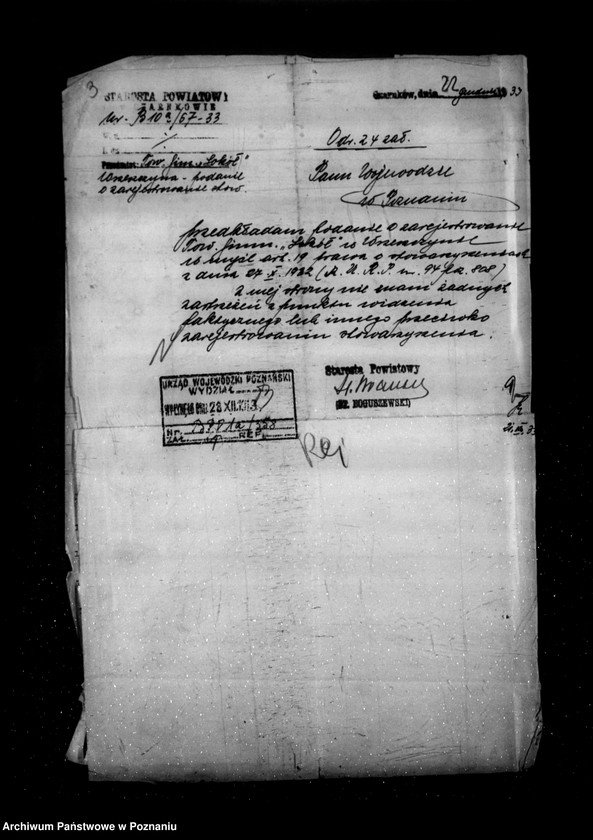 3
STAROSTA POWIATOWY
CZARNKOWIE
Nr. B 10a/67-33
Czarnków, dnia 21 grudnia 1933
Odr. 24 zał.
Tow. Gim. „Sokół"
Wrzeszczyna - podanie
o zarejestrowanie stow.
Panu Wojewodzie
w Poznaniu
przedkładam podanie o zarejestrowanie
Tow. Gimn. „Sokół" w Wrzeszczynie
w myśl art. 19 prawa o stowarzyszeniach
z dnia 27 X. 1932 (Dz. U. R. P. nr. 94 poz. 808)
Z mej strony nie mam żadnych
zastrzeżeń z punktu widzenia
faktycznego lub innego przeciwko
zarejestrowaniu stowarzyszenia.
Starosta Powiatowy
(ST. BOGUSZEWSKI)
URZĄD WOJEWÓDZKI POZNAŃSKI
WYDZIAŁ
WPŁYNĘŁO DNIA 28 XII. 1933
Nr.
ZAŁ. REF.
Rej
Archiwum Państwowe w Poznaniu